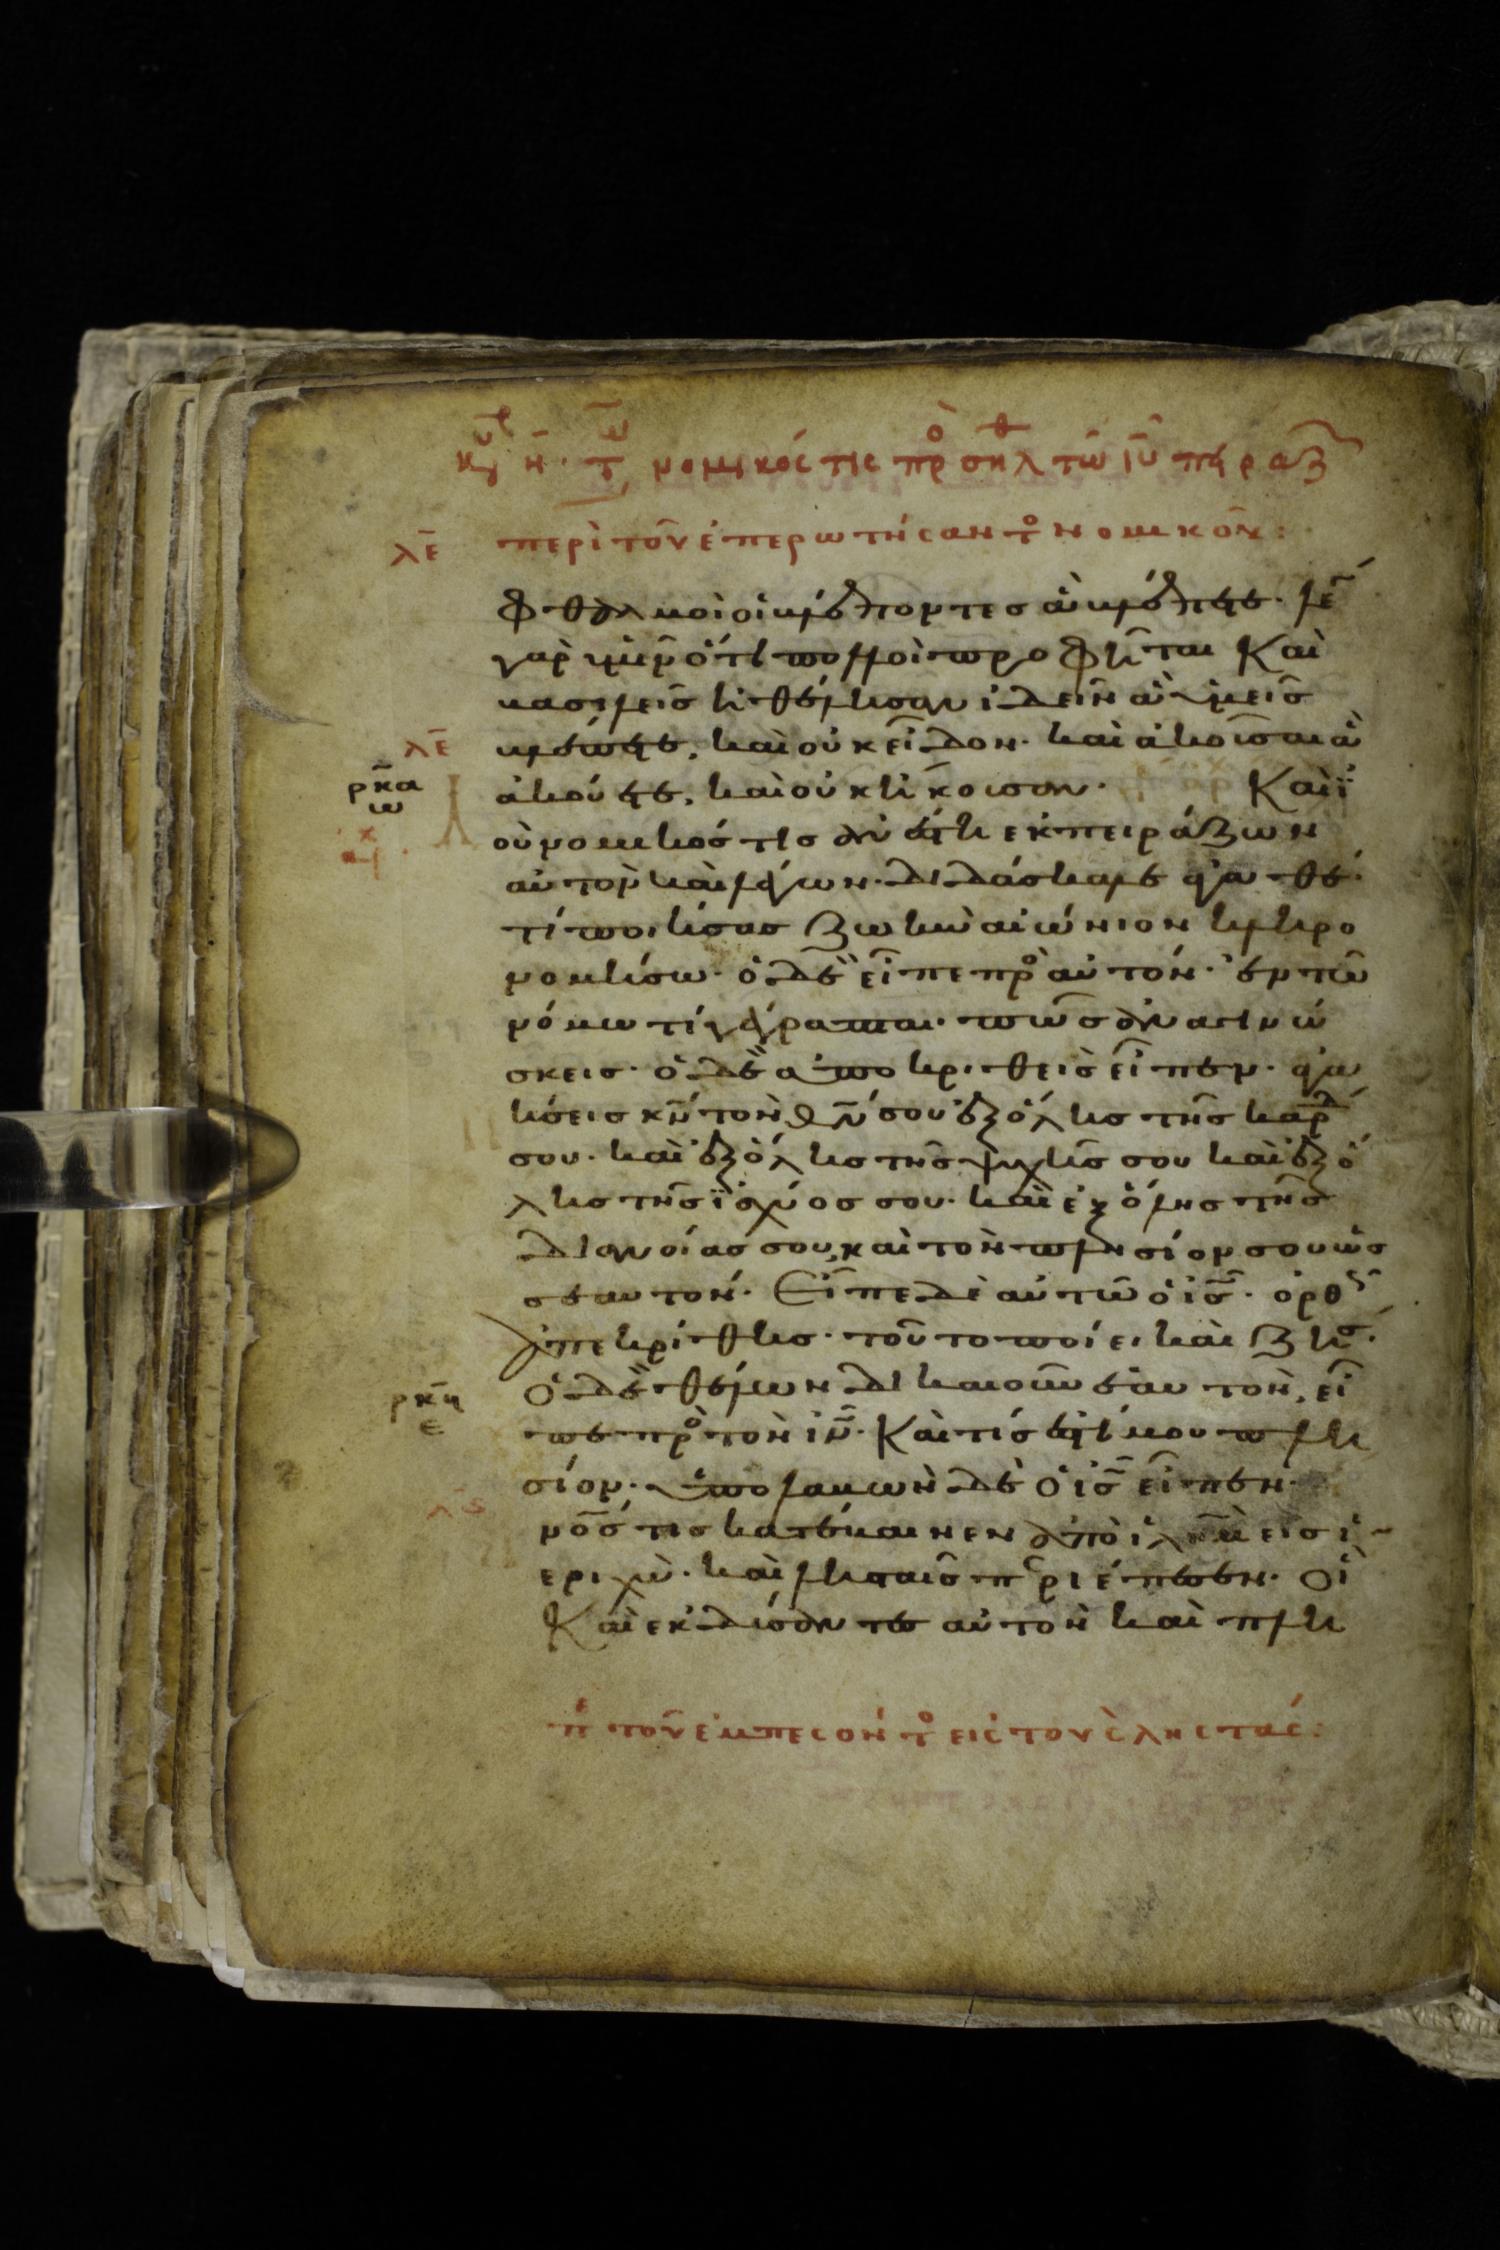 νομικός τις πρ σηλ τῶ ἰῦ πηραζ
λε περὶ τοῦ ἐπερωτήσαντο νομικοῦ:
φθαλμοὶ οἱ βλέποντες ἃ βλέπετε. λέ
γὰρ ὑμῖν ὅτι πολλοὶ προφῆται καὶ
βασιλεῖς ἠθέλησαν ἰδεῖν ἃ ὑμεῖς
λε βλέπετε, καὶ οὐκ εἶδον. καὶ ἀκοῦσαι ἃ
ρκα ἀκούετε, καὶ οὐκ ἤκουσαν. Καὶ ϊ
οὺ νομικός τις ἀνέστη ἐκπειράζων
αὐτὸν καὶ λέγων. διδάσκαλε ἀγαθέ.
τί ποιήσας ζωὴν αἰώνιον κληρο
νομήσω. ὁ δὲ εἶπε πρὸ αὐτόν. ἐν τῶ
νόμω τί γέγραπται. πῶς ἀναγινώ
σκεις. ὁ δὲ ἀποκριθεὶς εἶπεν. ἀγα
πήσεις κν τὸν θν σου ἐξ ὅλης τῆς καρδ
σου. καὶ ἐξ ὅλης τῆς ψυχῆς σου καὶ ἐξ ὅ
λης τῆς ϊσχύος σου. καὶ ἐξ ὅλης τῆς
διανοίας σου, καὶ τὸν πλησίον σου ὡς
σεαυτόν. Εἶπε δὲ αὐτῶ ὁ ις. ὀρθ
ἀπεκρίθης. τοῦτο ποίει καὶ ζήσ.
ρκη Ὁ δὲ θέλων δικαιοῦν ἑαυτὸν, εἶ
ε πε πρὸ τὸν ιν. Καὶ τίς ἐστί μου πλη
σίον. ὑπολαβὼν δὲ ὁ ις εἶπεν.
νος τις κατέβαινεν ἀπὸ ιλημ εἰς ἰ
εριχὼ. καὶ λησταῖς περιέπεσεν. Οἳ
Καὶ ἐκδύσαντες αὐτὸν καὶ πλη
π τοῦ ἐμπεσόντο εἰς τοὺς λῃστάς: